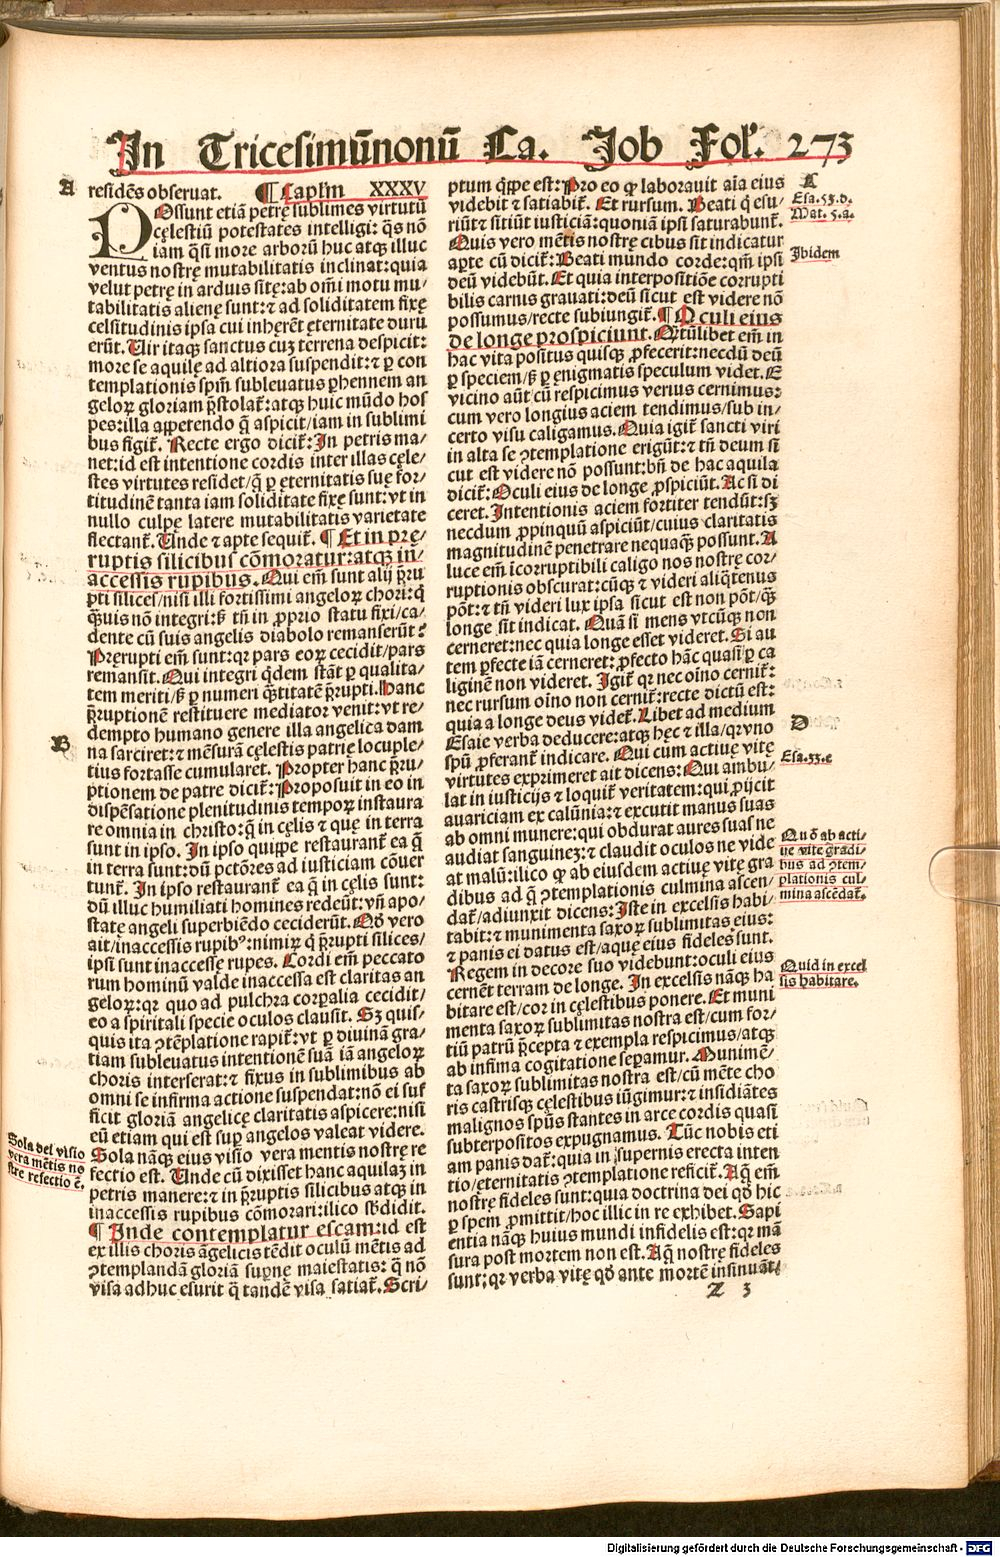 In Tricesimūnonū Ca. Job Fol. 273
A
residēs obseruat. ¶ Caplm XXXV
POssunt etiā petrę sublimes virtutū
cęlestiū potestates intelligi: q̄s nō
iam q̄si more arborū huc atqꝫ illuc
ventus nostrę mutabilitatis inclinat: quia
velut petrę in arduis sitę: ab om̄i motu mu/
tabilitatis alienę sunt: ⁊ ad soliditatem fixę
celsitudinis ipsa cui inhęrēt ęternitate duru
erūt. Uir itaqꝫ sanctus cuꝫ terrena despicit:
more se aquilę ad altiora suspendit: ⁊ ꝑ con
templationis spm̄ subleuatus ꝑhennem an
geloꝝ gloriam p̄stolat̄: atqꝫ huic mūdo hos
pes: illa appetendo q̄ aspicit/iam in sublimi
bus figit̄. Recte ergo dicit̄: In petris ma/
net: id est intentione cordis inter illas cęle/
stes virtutes residet/q̄ ꝑ ęternitatis suę for/
titudinē tanta iam soliditate fixę sunt: vt in
nullo culpę latere mutabilitatis varietate
flectant̄. Unde ⁊ apte sequit̄. ¶ Et in pre
ruptis silicibus cōmoratur: atqꝫ in/
accessis rupibus. Qui em̄ sunt alij p̄ru
pti silices/nisi illi fortissimi angeloꝝ chori: q̄
q̄uis nō integri: ß tn̄ in ꝓprio statu fixi/ca/
dente cū suis angelis diabolo remanserūt?
Pręrupti em̄ sunt: qꝛ pars eoꝝ cecidit/pars
remansit. Qui integri q̄dem stāt ꝑ qualita/
tem meriti/ß ꝑ numeri q̄titatē p̄rupti. Hanc
p̄ruptionē restituere mediator venit: vt re/
dempto humano genere illa angelica dam
B
na sarciret: ⁊ mēsurā cęlestis patrię locuple/
tius fortasse cumularet. Propter hanc p̄ru/
ptionem de patre dicit̄: Proposuit in eo in
dispēsatione plenitudinis tempoꝝ instaura
re omnia in christo: q̄ in cęlis ⁊ quę in terra
sunt in ipso. In ipso quippe restaurant̄ ea q̄
in terra sunt: dū pctōres ad iusticiam cōuer
tunt̄. In ipso restaurant̄ ea q̄ in celis sunt:
dū illuc humiliati homines redeūt: vn̄ apo/
statę angeli superbiēdo ceciderūt. Qd̄ vero
ait/inaccessis rupibꝰ: nimiꝝ q̄ p̄rupti silices/
ipsi sunt inaccessę rupes. Cordi em̄ peccato
rum hominū valde inaccessa est claritas an
geloꝝ: qꝛ quo ad pulchra corꝑalia cecidit/
eo a spiritali specie oculos clausit. Sꝫ quis/
quis ita ꝯtēplatione rapit̄: vt ꝑ diuinā gra/
tiam subleuatus intentionē suā iā angeloꝝ
choris interserat: ⁊ fixus in sublimibus ab
omni se infirma actione suspendat: nō ei suf
ficit gloriā angelicę claritatis aspicere: nisi
eū etiam qui est sup̱ angelos valeat videre.
Sola dei visio
vera mētis no
stre refectio ē.
Sola nāqꝫ eius visio vera mentis nostrę re
fectio est. Unde cū dixisset hanc aquilaꝫ in
petris manere: ⁊ in p̄ruptis silicibus atqꝫ in
inaccessis rupibus cōmorari: ilico sb̄didit.
¶ Inde contemplatur escam: id est
ex illis choris āgelicis tēdit oculū mētis ad
ꝯtemplandā gloriā supnę maiestatis: q̄ nō
visa adhuc esurit q̄ tandē visa satiat̄. Scri/
ptum q̄ppe est: Pro eo ꝙ laborauit aīa eius
videbit ⁊ satiabit̄. Et rursum. Beati q̄ esu/
riūt ⁊ sitiūt iusticiā: quoniā ipsi saturabunt̄.
Quis vero mētis nostrę cibus sit indicatur
aꝑte cū dicit̄: Beati mundo corde: qm̄ ipsi
deū videbūt. Et quia interpositiōe corrupti
bilis carnis grauati: deū sicut est videre nō
possumus/recte subiungit̄. ¶ Oculi eius
de longe prospiciunt. Q̄tūlibet em̄ in
hac vita positus quisqꝫ ꝓfecerit: necdū deū
ꝑ speciem/ß ꝑ ęnigmatis speculum videt. E
vicino aūt cū respicimus verius cernimus:
cum vero longius aciem tendimus/sub in/
certo visu caligamus. Quia igit̄ sancti viri
in alta se ꝯtemplatione erigūt: ⁊ tn̄ deum si
cut est videre nō possunt: bn̄ de hac aquila
dicit̄: Oculi eius de longe ꝓspiciūt. Ac si di
ceret. Intentionis aciem fortiter tendūt: sꝫ
necdum ꝓpinquū aspiciūt/cuius claritatis
magnitudinē penetrare nequaq̄ possunt. A
luce em̄ īcorruptibili caligo nos nostrę cor/
ruptionis obscurat: cūqꝫ ⁊ videri aliq̄tenus
pōt: ⁊ tn̄ videri lux ipsa sicut est non pōt/q̄
longe sit indicat. Quā si mens vtcūqꝫ non
cerneret: nec quia longe esset videret. Si au
tem ꝑfecte iā cerneret: ꝓfecto hāc quasi ꝑ ca
liginē non videret. Igit̄ qꝛ nec oīno cernit̄:
nec rursum oīno non cernit̄: recte dictū est:
quia a longe deus videt̄. Libet ad medium
Esaie verba deducere: atqꝫ hęc ⁊ illa/qꝛ vno
spū ꝓferant̄ indicare. Qui cum actiuę vitę
virtutes exprimeret ait dicens: Qui ambu/
lat in iusticijs ⁊ loquit̄ veritatem: qui ꝓijcit
auariciam ex calūnia: ⁊ excutit manus suas
ab omni munere: qui obdurat aures suas ne
audiat sanguineꝫ: ⁊ claudit oculos ne vide
at malū: ilico ꝙ ab eiusdem actiuę vitę gra
dibus ad q̄ ꝯtemplationis culmina ascen/
dat̄/adiunxit dicens: Iste in excelsis habi/
tabit: ⁊ munimenta saxoꝝ sublimitas eius:
⁊ panis ei datus est/aquę eius fideles sunt.
Regem in decore suo videbunt: oculi eius
cernēt terram de longe. In excelsis nāqꝫ ha
bitare est/cor in cęlestibus ponere. Et muni
menta saxoꝝ sublimitas nostra est/cum for/
tiū patrū p̄cepta ⁊ exempla respicimus/atqꝫ
ab infima cogitatione seꝑamur. Munimē/
ta saxoꝝ sublimitas nostra est/cū mēte cho
ris castrisqꝫ cęlestibus iūgimur: ⁊ insidiātes
malignos spūs stantes in arce cordis quasi
subterpositos expugnamus. Tūc nobis eti
am panis dat̄: quia in supernis erecta inten
tio/ęternitatis ꝯtemplatione reficit̄. Aq̄ em̄
nostrę fideles sunt: quia doctrina dei qd̄ hic
ꝑ spem ꝓmittit/hoc illic in re exhibet. Sapi
entia nāqꝫ huius mundi infidelis est: qꝛ mā
sura post mortem non est. Aq̄ nostrę fideles
sunt: qꝛ verba vitę qd̄ ante mortē insinuāt/
Z 3
C
Esa. 53. d.
Mat. 5. a.
Ibidem
D
Esa. 33. e
Qu ō ab acti/
uę vitę gradi/
bus ad ꝯtem/
plationis cul/
mina ascēdat̄.
Quid in excel
sis habitare.
Digitalisierung gefördert durch die Deutsche Forschungsgemeinschaft - DFG